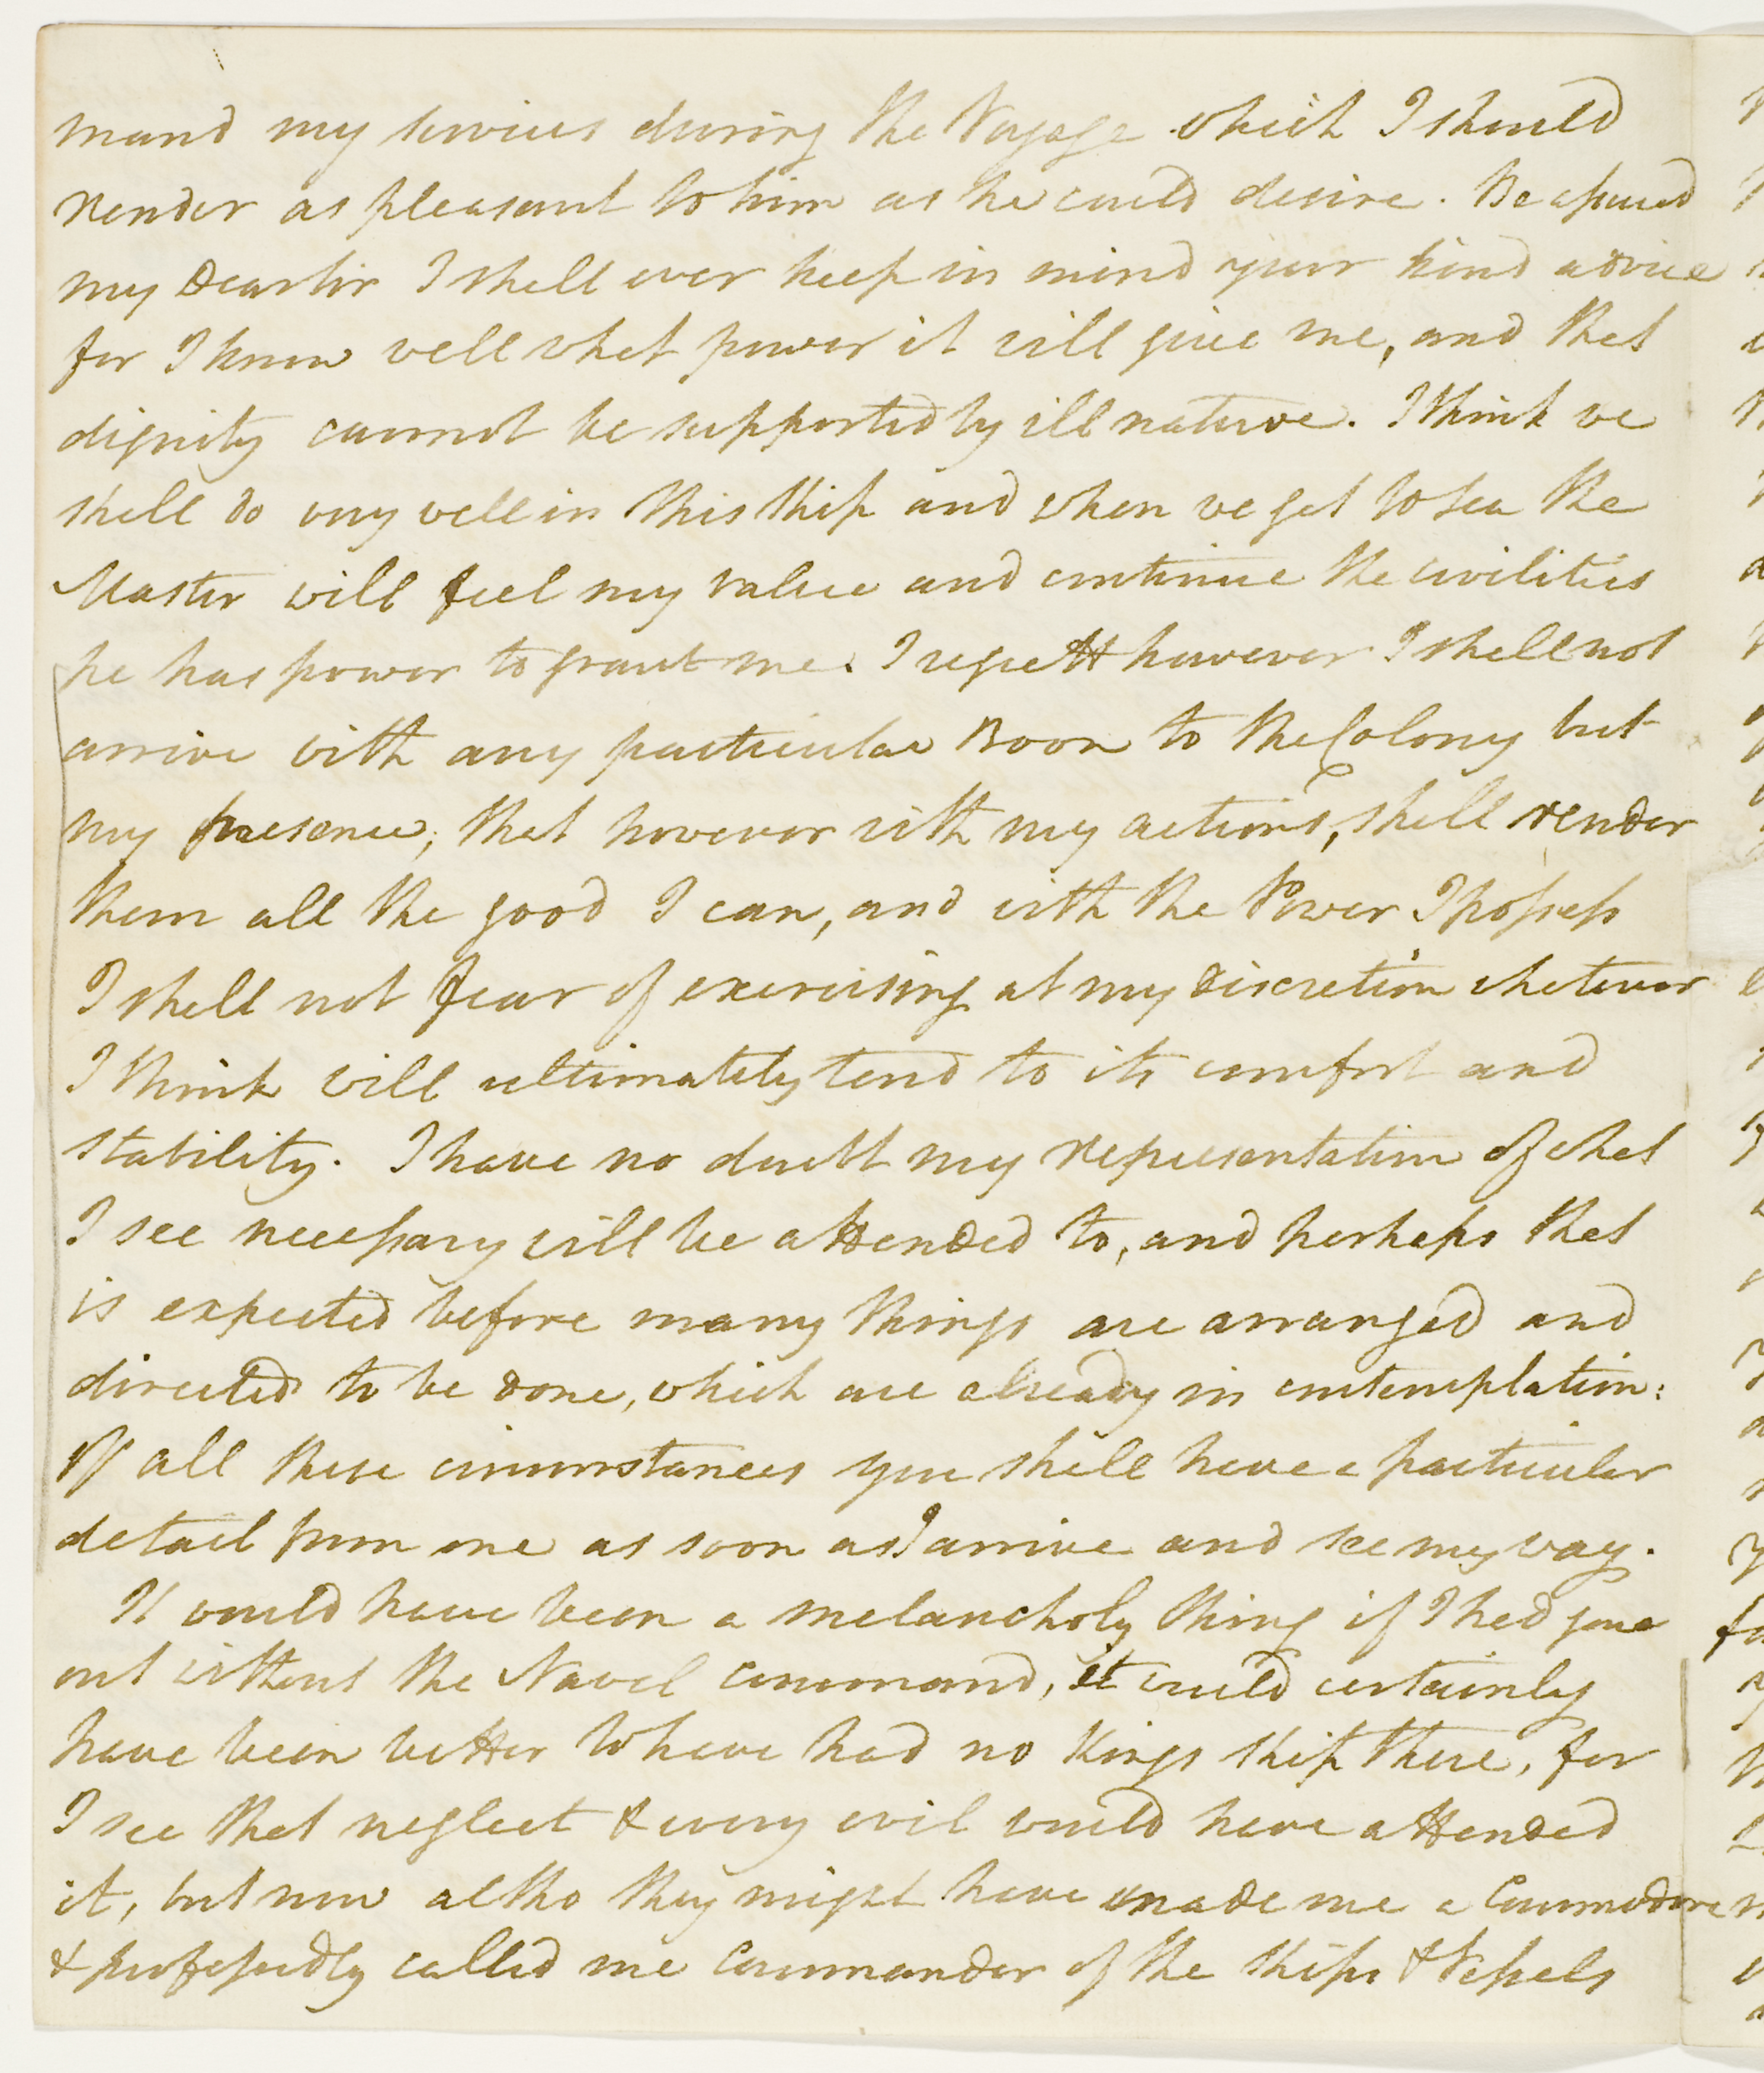 mand my services during the Voyage which I should
render as pleasant to him as he could desire. Be assured
my Dear Sir I shall ever keep in mind your kind advice
for I know well what power it will give me, and that
dignity cannot be supported by ill nature. I think we
shall do very well in this Ship and when we get to Sea the
Master will feel my value and continue the civilities
he has power to grant me. I regrett however I shall not
arrive with any particular Boon to the Colony but
my presence; that however with my actions, shall render
them all the good I can, and with the Power I possess
I shall not fear of exercising at my discretion whatever
I think will ultimately tend to its comfort and
stability. I have no doubt my representation of what
I see necessary will be attended to, and perhaps that
is expected before many things are arranged and
directed to be done, which are already in contemplation:
Of all these circumstances you shall have a particular
detail from me as soon as I arrive and see my way.
It would have been a melancholy thing if I had gone
out without the Naval command, it would certainly
have been better to have had no Kings Ship there, for
I see that neglect & every evil would have attended
it, but now altho they might have made me a Commodore
& professedly called me Commander of the Ships & Vessels